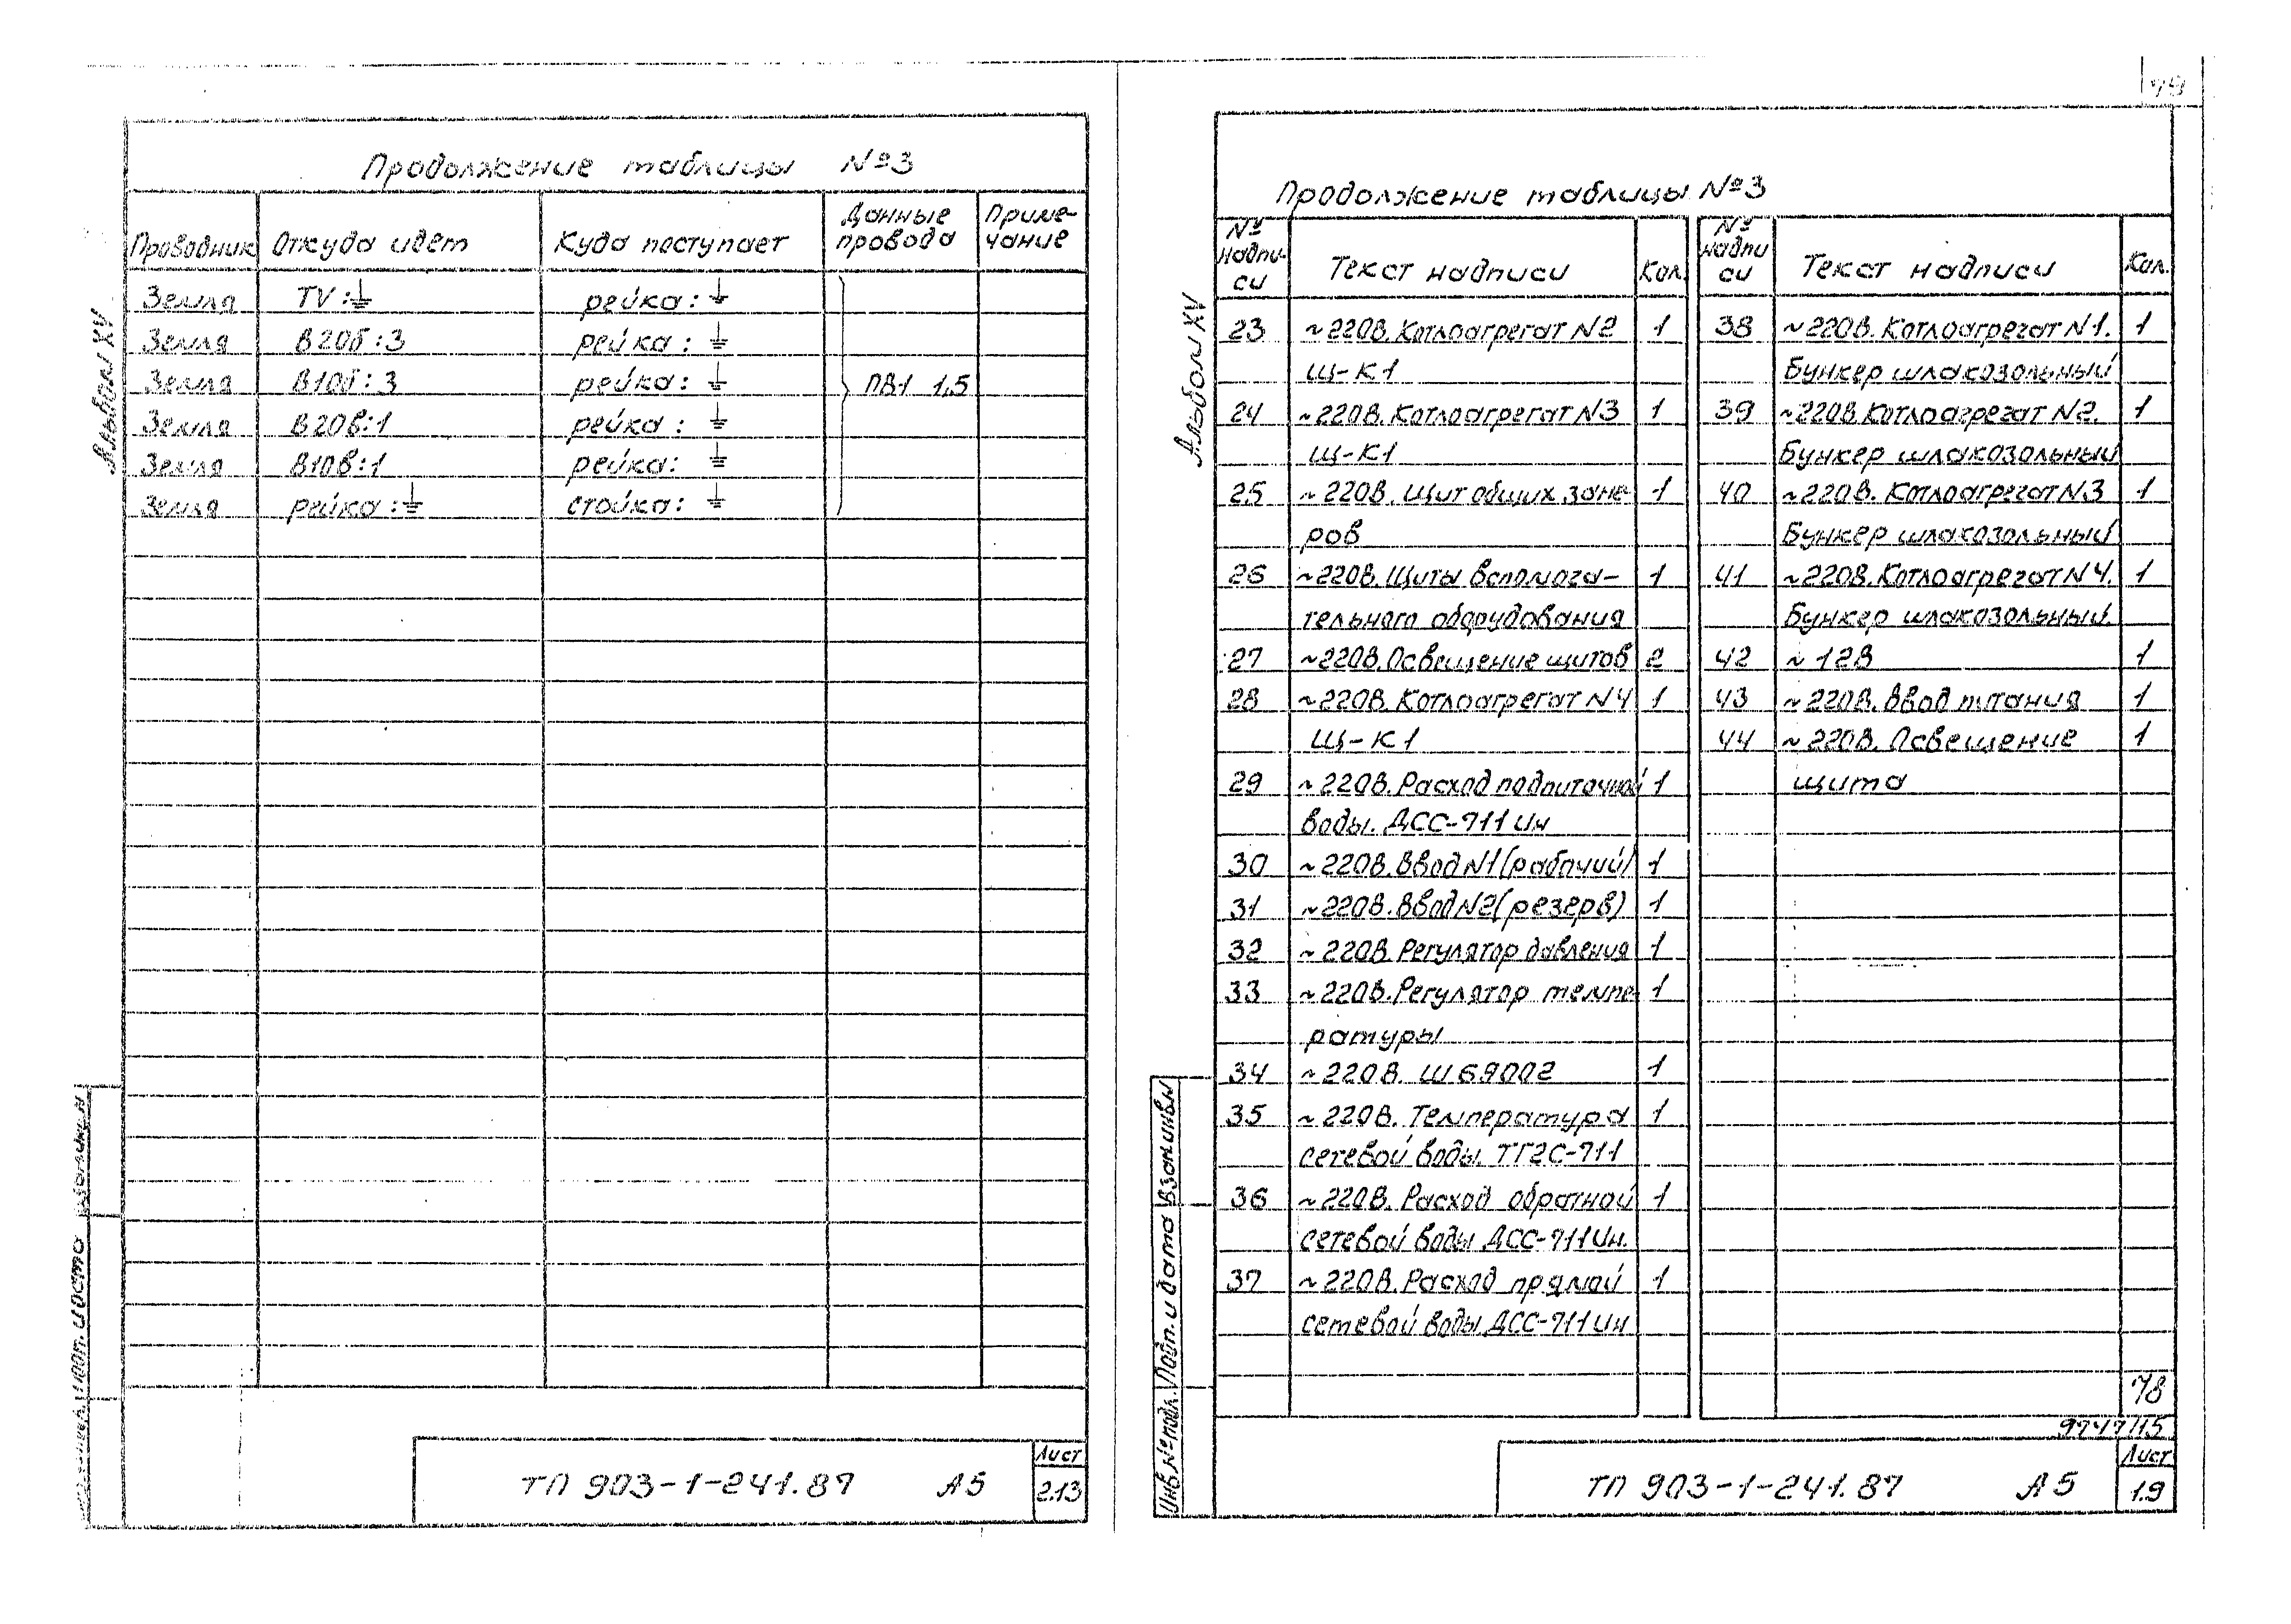 79
Продолжение таблицы №3
Проводник Откуда идет Куда поступает Данные провода Приме-чание
Земля TV:⏚ рейка:⏚
Земля В20б:3 рейка:⏚
Земля В10б:3 рейка:⏚ ПВ1 1,5
Земля В20в:1 рейка:⏚
Земля В10в:1 рейка:⏚
Земля рейка:⏚ стойка:⏚
Альбом XV
ТП 903-1-241.87 А5
Лист
2.13
Продолжение таблицы №3
№ надпи-си Текст надписи Кол. № надпи си Текст надписи Кол.
23 ~220В. Котлоагрегат N2 1 38 ~220В. Котлоагрегат N1. 1
Щ-К1 Бункер шлакозольный
24 ~220В. Котлоагрегат N3 1 39 ~220В. Котлоагрегат N2. 1
Щ-К1 Бункер шлакозольный
25 ~220В. Щит общих заме- 1 40 ~220В. Котлоагрегат N3 1
ров Бункер шлакозольный
26 ~220В. Щиты вспомога- 1 41 ~220В. Котлоагрегат N4. 1
тельного оборудования Бункер шлакозольный.
27 ~220В. Освещение щитов 2 42 ~12В 1
28 ~220В. Котлоагрегат N4 1 43 ~220В. Ввод питания 1
Щ-К1 44 ~220В. Освещение 1
29 ~220В. Расход подпиточной 1 щита
воды. ДСС-711Ин
30 ~220В. Ввод N1 (рабочий) 1
31 ~220В. Ввод N2 (резерв) 1
32 ~220В. Регулятор давления 1
33 ~220В. Регулятор темпе- 1
ратуры
34 ~220В. Ш69002 1
35 ~220В. Температура 1
сетевой воды. ТГ2С-711
36 ~220В. Расход обратной 1
сетевой воды ДСС-711Ин.
37 ~220В. Расход прямой 1
сетевой воды ДСС-711Ин
Альбом XV
Инв.№ подл. Подп. и дата Взам.инв.N
78
9747/15
ТП 903-1-241.87 А5
Лист
1.9